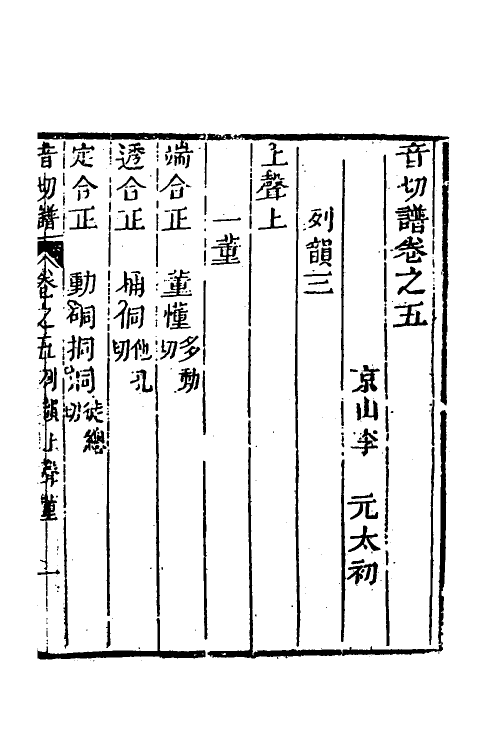 音切譜卷之五
京山李 元太初
列韻三
上聲上
一董
端合正 董懂多動切
透合正 桶侗他孔切
定合正 動硐挏洞徒總切
音切譜 卷之五列韻上聲董 一